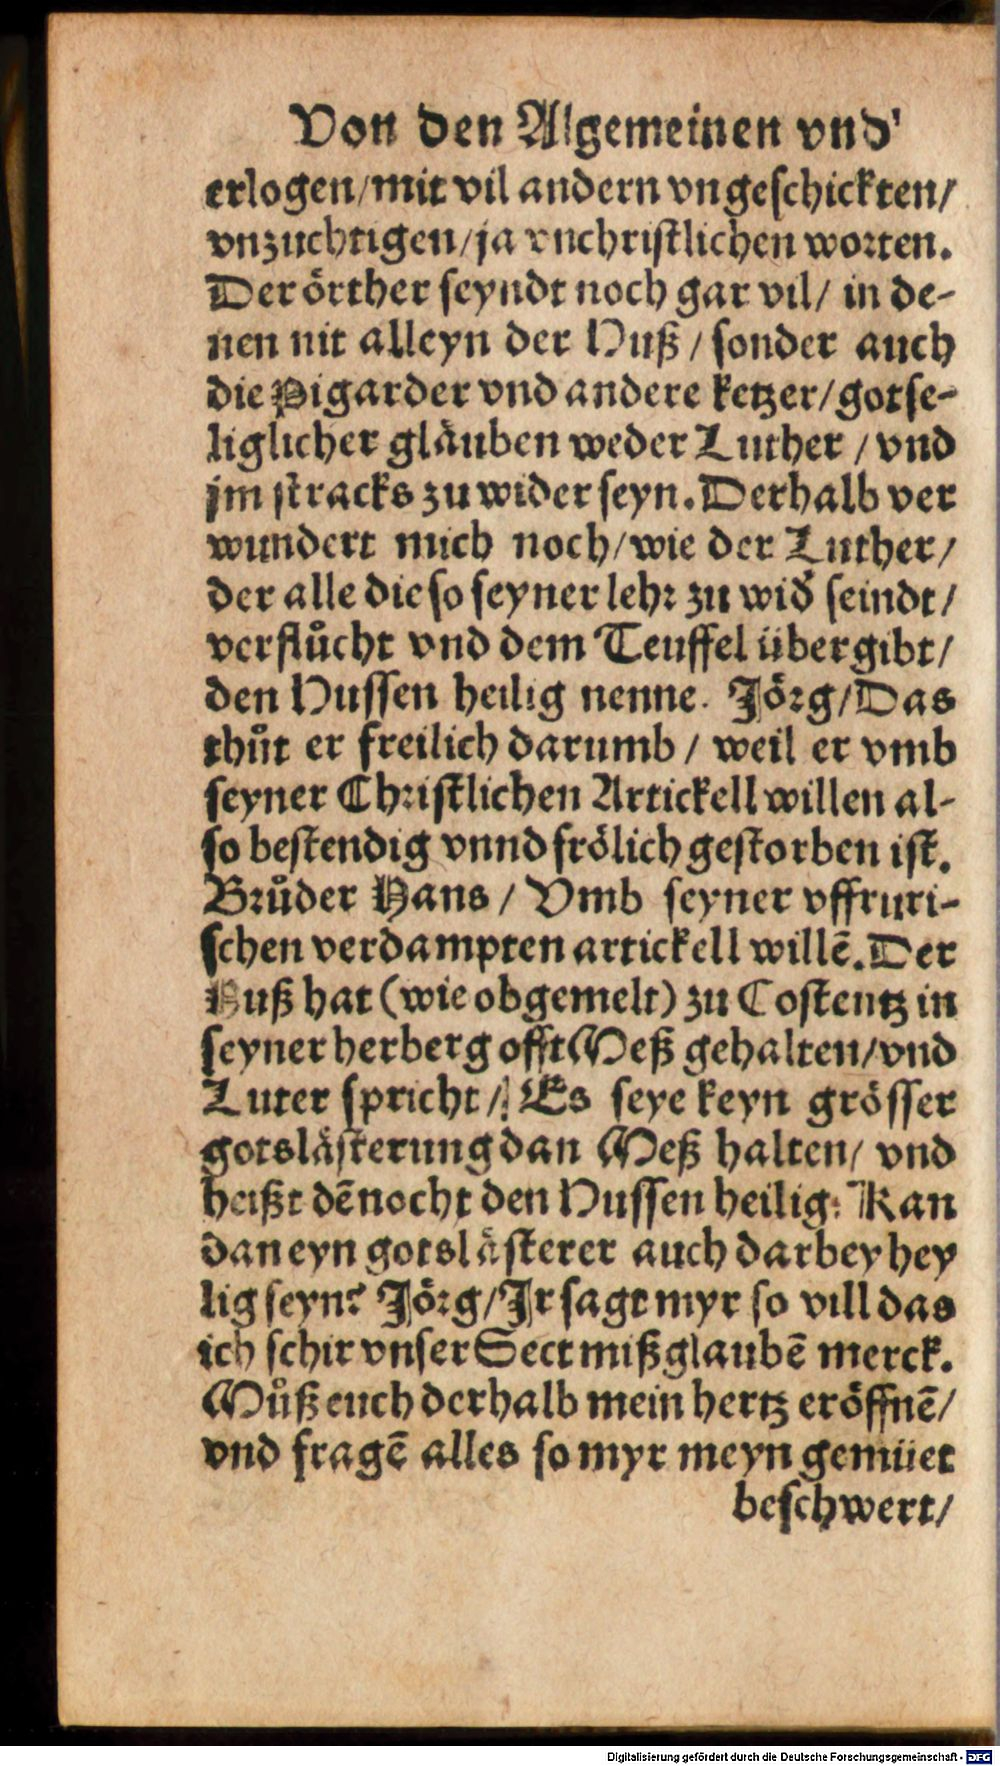 Von den Algemeinen vnd
erlogen/mit vil andern vngeschickten/
vnzuchtigen/ja vnchristlichen worten.
Der örther seyndt noch gar vil/ in de-
nen nit alleyn der Huß/ sonder auch
die Pigarder vnd andere ketzer/gotse-
liglicher glauben weder Luther/ vnd
jm stracks zu wider seyn. Derhalb ver
wundert mich noch/wie der Luther/
der alle die so seyner lehr zu wid̕ seindt/
verflůcht vnd dem Teuffel übergibt/
den Hussen heilig nenne. Jörg/Das
thůt er freilich darumb/ weil er vmb
seyner Christlichen Artickell willen al-
so bestendig vnnd frölich gestorben ist.
Brůder Hans/ Vmb seyner vffruri-
schen verdampten artickell willē. Der
Huß hat (wie obgemelt) zu Costentz in
seyner herberg offt Meß gehalten/vnd
Luter spricht/ Es seye keyn grösser
gotslästerung dan Meß halten/ vnd
heißt dēnocht den Hussen heilig: Kan
dan eyn gotslästerer auch darbey hey
lig seyn? Jörg/Jr sagt myr so vill das
ich schir vnser Sect mißglaubē merck.
Můß euch derhalb mein hertz eröffnē/
vnd fragē alles so myr meyn gemüet
beschwert/
Digitalisierung gefördert durch die Deutsche Forschungsgemeinschaft - DFG